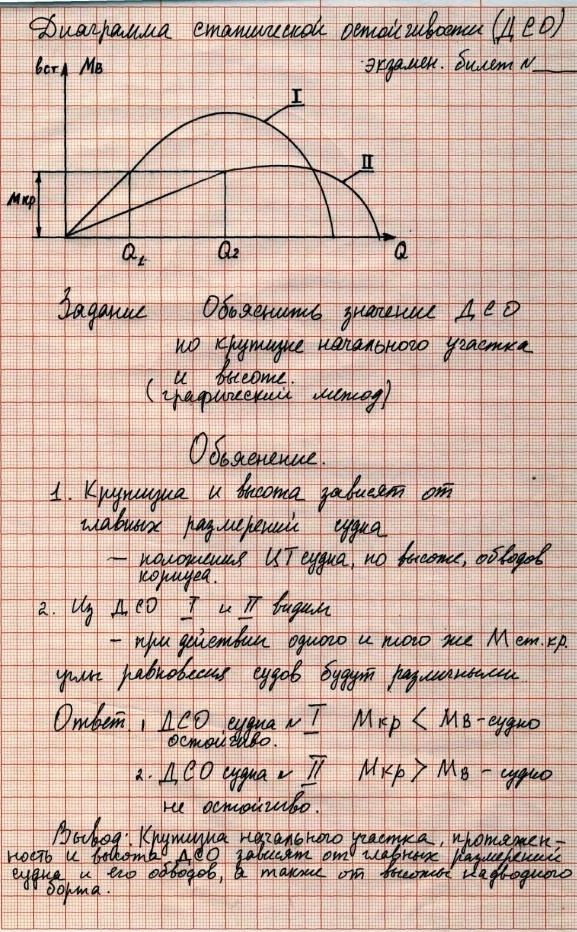 Диаграмма статической остойчивости (ДСО)
экзамен. билет N____
вст Мв
I
II
Мкр
Q1 Q2 Q
Задание Обьяснить значение ДСО
по крутизне начального участка
и высоте.
(графический метод)
Обьяснение.
1. Крутизна и высота зависят от
главных размерений судна
— положения ЦТ судна, по высоте, обводов
корпуса.
2. Из ДСО I и II видим
- при действии одного и того же М ст.кр.
углы равновесия судов будут различными.
Ответ. 1 ДСО судна N I Мкр < Мв - судно
остойчиво.
2. ДСО судна N II Мкр > Мв - судно
не остойчиво.
Вывод: Крутизна начального участка, протяжен-
ность и высота ДСО зависят от главных размерений
судна и его обводов, а также от высоты надводного
борта.